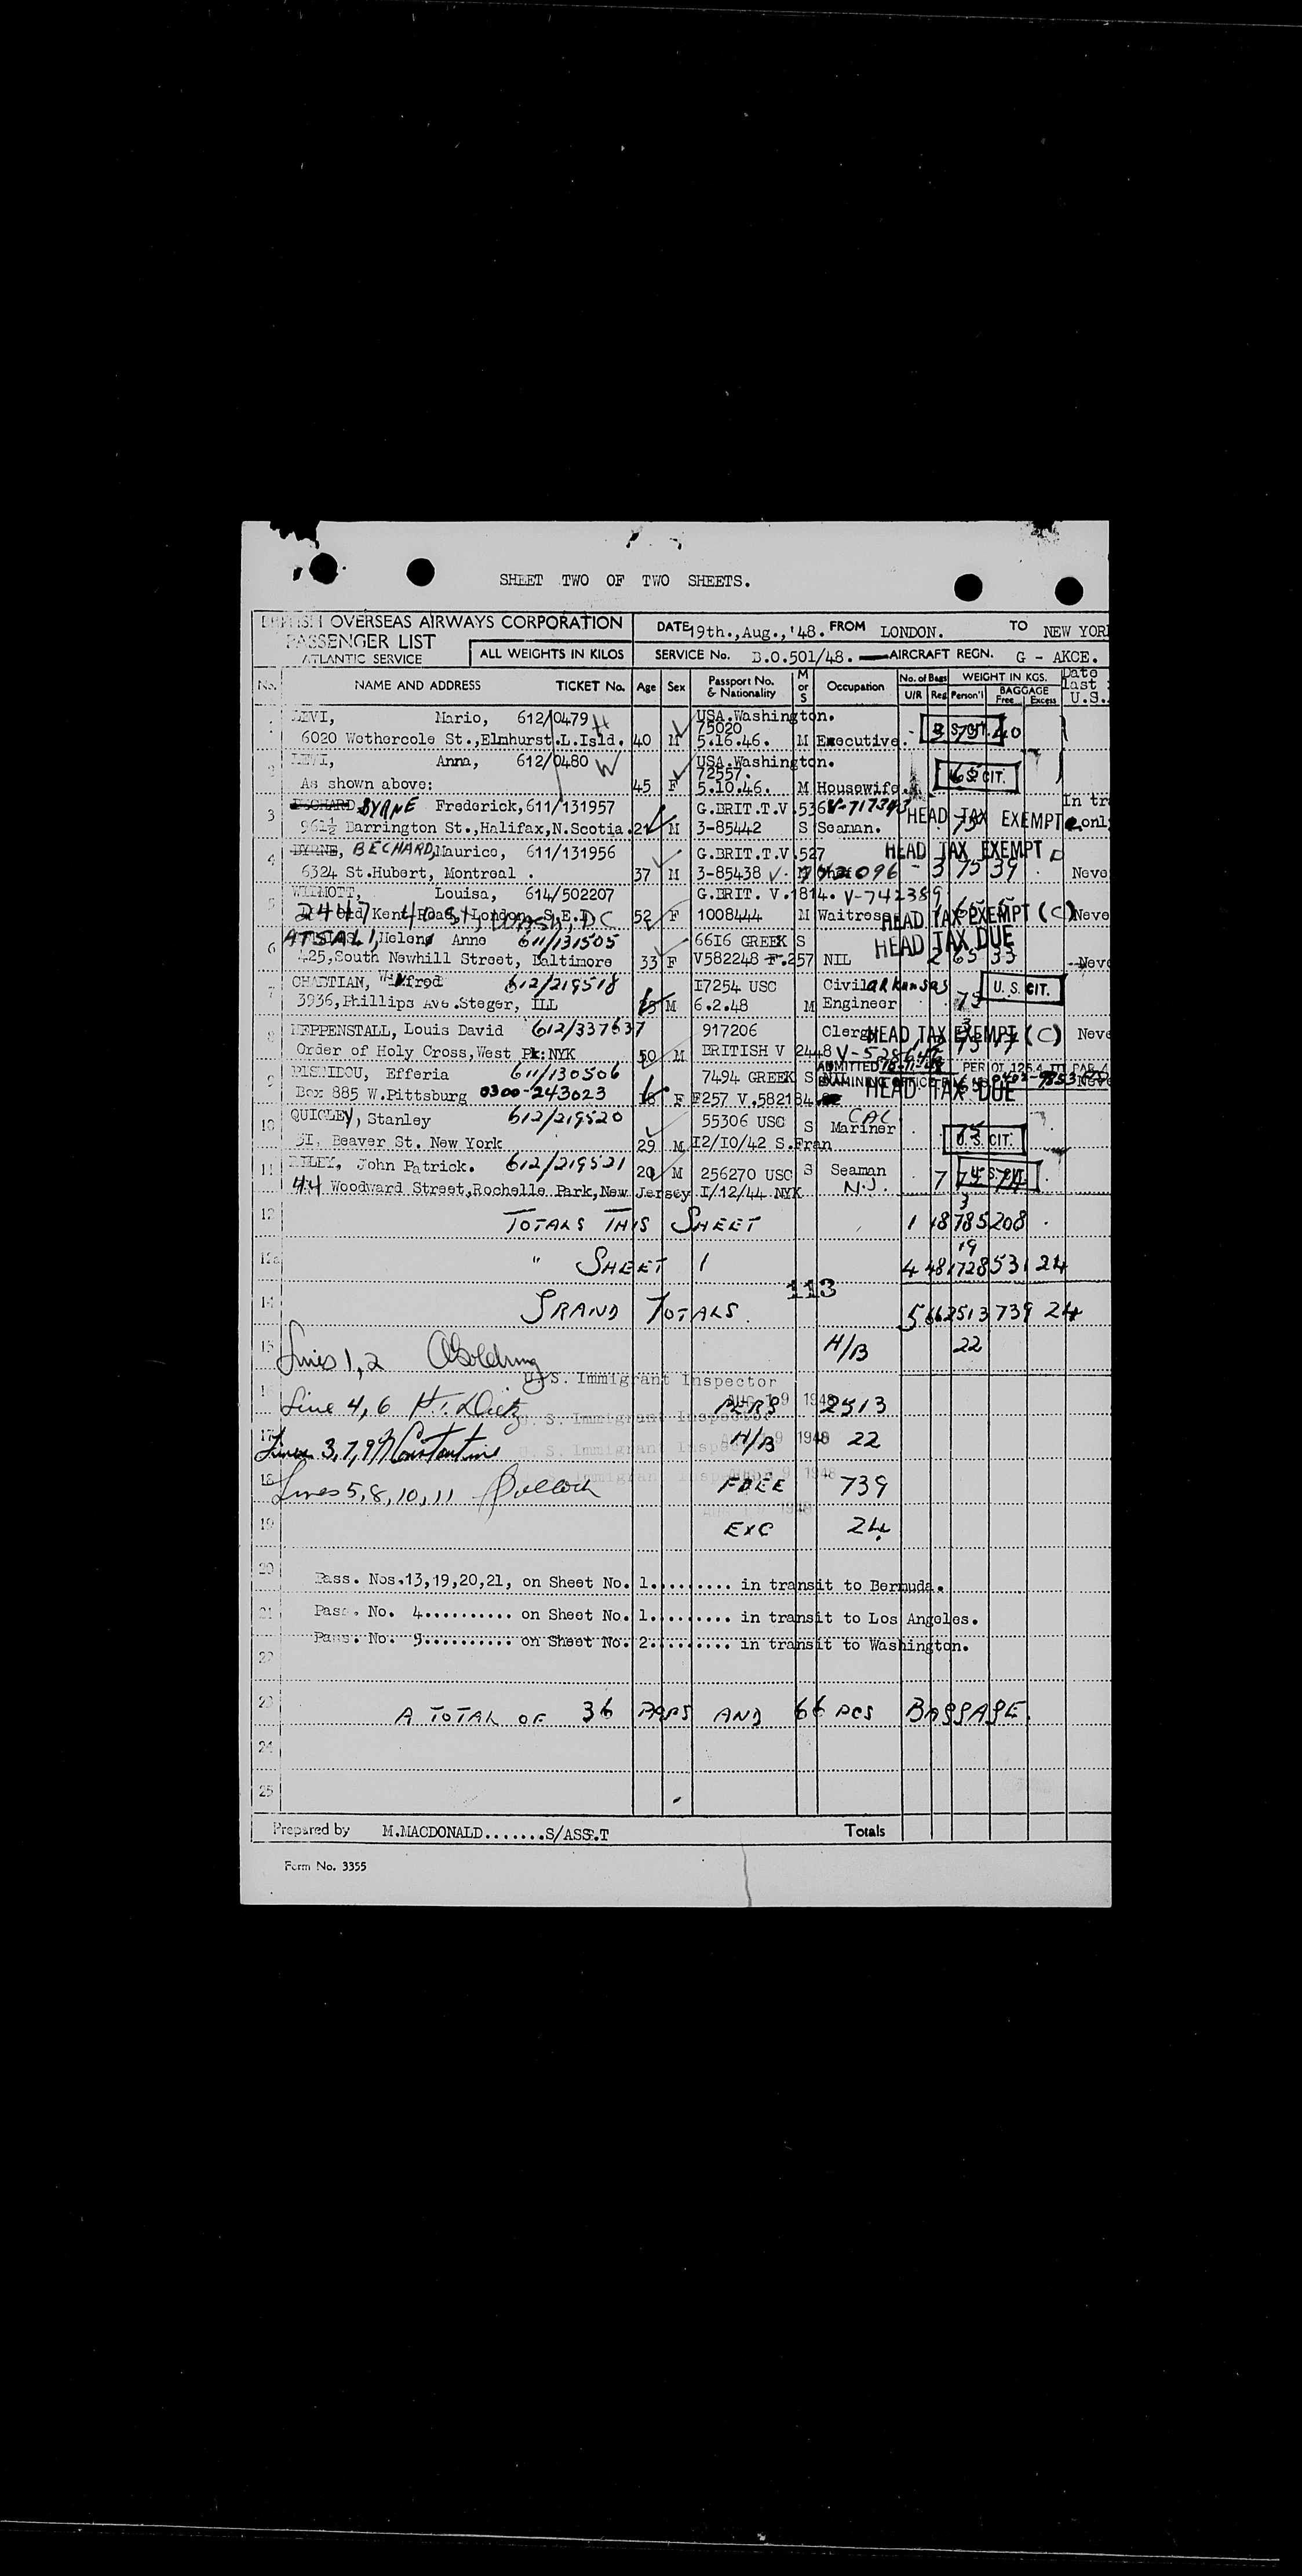 SHEET TWO OF TWO SHEETS.
BRITISH OVERSEAS AIRWAYS CORPORATION
PASSENGER LIST
ATLANTIC SERVICE
ALL WEIGHTS IN KILOS
DATE 19th.,Aug.,'48. FROM LONDON. TO NEW YOR
SERVICE No. B.O.501/48. AIRCRAFT REGN. G - AKCE.
No. NAME AND ADDRESS TICKET No. Age Sex Passport No. & Nationality M or S Occupation No. of Bags U/R Reg WEIGHT IN KGS. Person'l BAGGAGE Free Excess Date last U.S.
LEVI, Mario, 612/0479 USA.Washington.
75020
6020 Wethercole St.,Elmhurst.L.Isld. 40 M 5.16.46. M Executive. 40
LEVI, Anna, 612/0480 W USA.Washington.
72557.
As shown above: 45 F 5.10.46. M Housewife. U.S. CIT.
3 BYRNE Frederick, 611/131957 G.BRIT.T.V.536 In tr
961½ Barrington St.,Halifax,N.Scotia. M 3-85442 S Seaman. HEAD TAX EXEMPT onl
4 BYRNE, BECHARD, Maurice, 611/131956 G.BRIT.T.V.527 HEAD TAX EXEMPT
6324 St.Hubert, Montreal . 37 M 3-85438 3 75 39 Neve
5 WILMOTT, Louisa, 614/502207 G.BRIT. V.1814. V-742389
Old Kent Road, London, S.E.I. 52 F 1008444 M Waitress HEAD TAX EXEMPT (C) Neve
6 ATSALI, Helen Anne 611/131505 6616 GREEK S HEAD TAX DUE
425,South Newhill Street, Baltimore 33 F V582248 F.257 NIL 2 65 33 Neve
7 Wilfred 612/219518 I7254 USC Civil arkansas U. S. CIT.
3936,Phillips Ave.Steger, ILL M 6.2.48 M Engineer 75
8 HEPPENSTALL, Louis David 612/337637 917206 HEAD TAX EXEMPT (C) Neve
Order of Holy Cross,West Pk:NYK 50 M BRITISH V 2448
9 Efferia 611/130506 7494 GREEK S ADMITTED
Box 885 W.Pittsburg 0300-243023 F F257 V.582184 HEAD TAX DUE
10 QUIGLEY, Stanley 612/219520 55306 USC S CAL Mariner U.S. CIT.
31, Beaver St. New York 29 M I2/I0/42 S.Fran
11 John Patrick. 612/219521 20 M 256270 USC S Seaman 7
44 Woodward Street,Rochelle Park,New Jersey I/12/44 NYK N.J.
12 TOTALS THIS SHEET 1 18 785 208
" SHEET 1 4 48 1728 531 24
113
14 GRAND TOTALS. 5 66 2513 739 24
15 Lines 1,2 H/B 22
U. S. Immigrant Inspector
16 Line 4,6 H. Dietz PERS 2513
U. S. Immigrant Inspector AUG 19 1948
17 Lines 3,7,9 Constantine H/B 22
18 Lines 5,8,10,11 FREE 739
19 EXC 24
20 Pass. Nos.13,19,20,21, on Sheet No. 1......... in transit to Bermuda.
21 Pass. No. 4.......... on Sheet No. 1......... in transit to Los Angeles.
Pass. No. 5.......... on Sheet No. 2......... in transit to Washington.
22
23 A TOTAL OF 36 PAPS AND 66 PCS BAGGAGE.
24
25
Prepared by M.MACDONALD.......S/ASS.T Totals
Form No. 3355